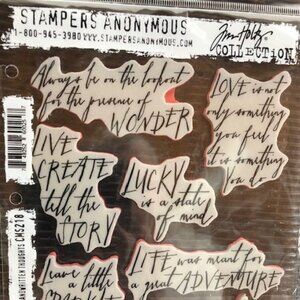 STAMPERS ANONYMOUS
1-800-945-3980 www.STAMPERSANONYMOUS.COM
Tim Holtz
COLLECTION
Always be on the lookout
for the presence of
WONDER
LOVE is not
only something
you feel
it is something
you do
LIVE
CREATE
tell the
STORY
LUCKY
is a state
of mind
LIFE was meant for
a great ADVENTURE
Leave a little
HANDWRITTEN THOUGHTS CMS218